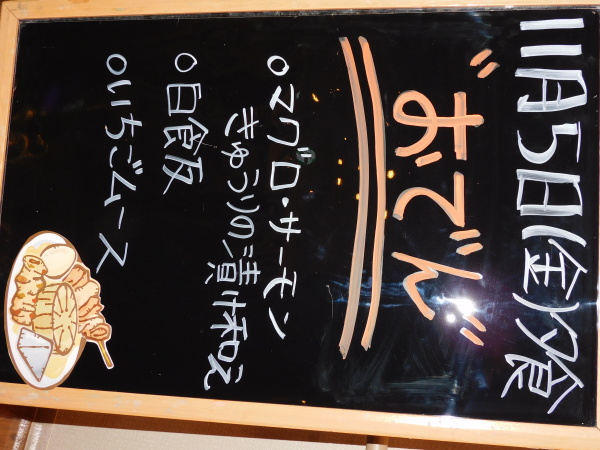 11月5日(金)夕食
"おでん"
○マグロ・サーモン
きゅうりの漬け和え
○白飯
○いちごムース